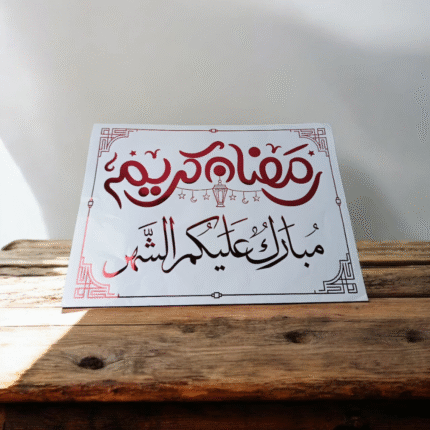 رمضان كريم
مُبَارَكٌ عَلَيكُم الشَّهر